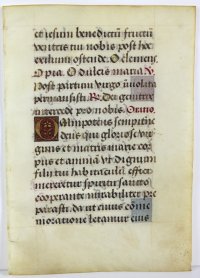 et iesum benedictū fructū
ventris tui nobis post hoc
exilium ostende. O clemens
O pia. O dulcis maria. V.
Post partum virgo inviolata
permansisti. R. Dei genitrix
intercede pro nobis. Oratio
Omnipotens sempitne
deus qui gloriose vir
ginis et matris marie cor
pus et animā ut dignum
filii tui habitaculū effici
mereretur spiritu sancto
cooperante mirabiliter pre
parasti. da ut cuius cōme
moratione letamur eius